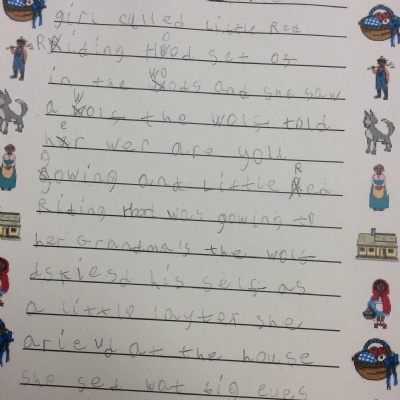 girl called Little Red
Riding Hood set of
in the woods and she saw
a wolf the wolf told
her wer are you
gowing and Little Red
Riding Hood was gowing to
her Grandma's the wolf
dskiesd his self as
a little layter she
arievd at the house
she sed wat big eyes